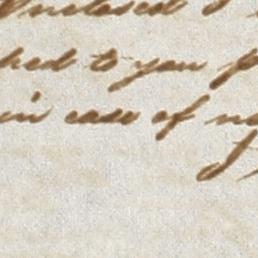 Enclosed I
hed to you p
in case of n